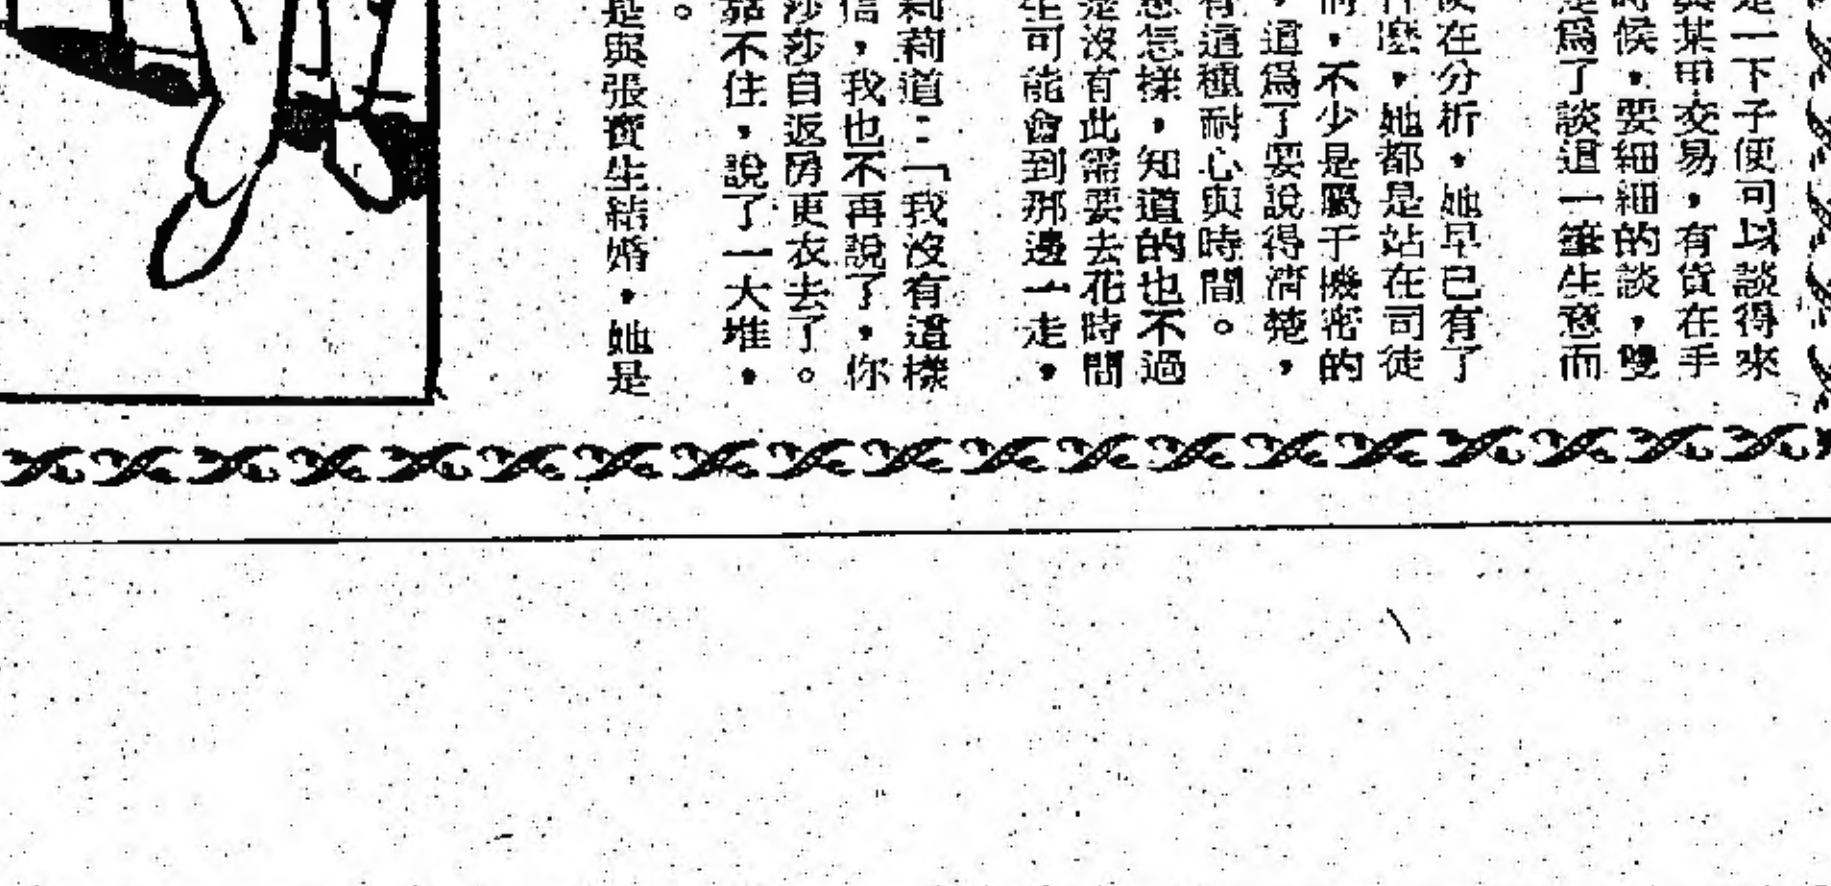 是一下子便可以談得來
與某甲交易，有貨在手
時候，要細細的談，雙
是爲了談這一筆生意而
便在分析，她早已有了
什麽，她都是站在司徒
，不少是屬于機密的
，這爲了要說得淸楚，
有這種耐心與時間。
怎樣，知道的也不過
是沒有此需要去花時間
生可能會到那邊一走，
莉莉道：「我沒有這樣
信，我也不再說了，你
莎莎自返房更衣去了。
不住，說了一大堆，
。
是與張寶生結婚，她是